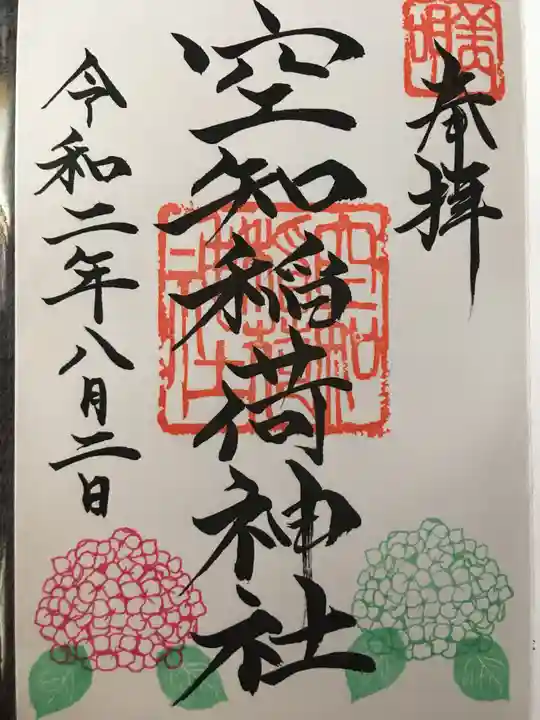 奉拝
空知稲荷神社
令和二年八月二日